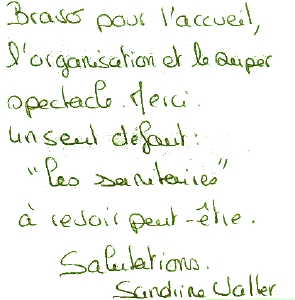 Bravo pour l'accueil,
l'organisation et le super
spectacle. Merci.
un seul défaut:
"les sanitaires"
à revoir peut-être.
Salutations.
Sandrine Waller